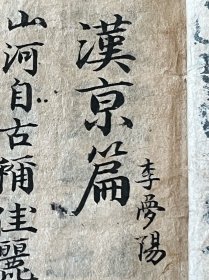 漢京篇
李夢陽
山河自古稱佳麗